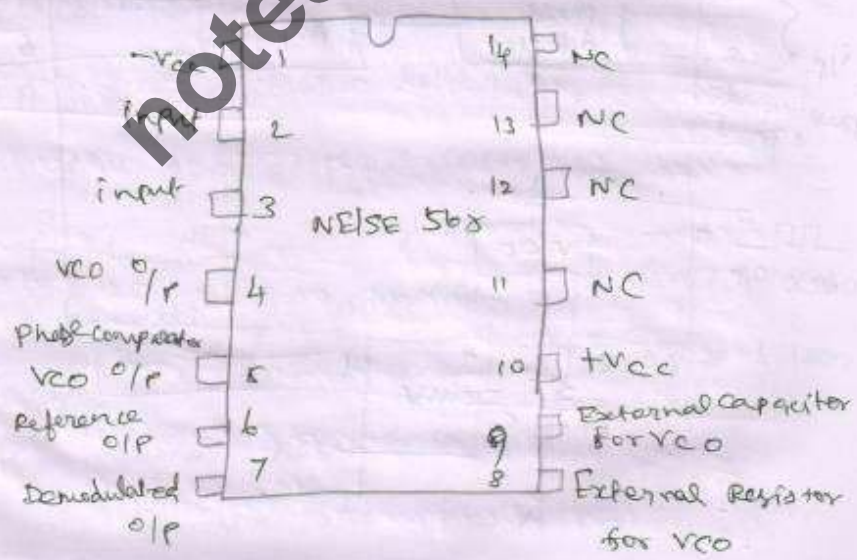 notes
-Vcc 1
input 2
input 3
VCO O/P 4
Phase Comparator
VCO O/P 5
Reference
O/P 6
Demodulated
O/P 7
NE/SE 565
14 NC
13 NC
12 NC
11 NC
10 +Vcc
9 External Capacitor
for VCO
8 External Resistor
for VCO